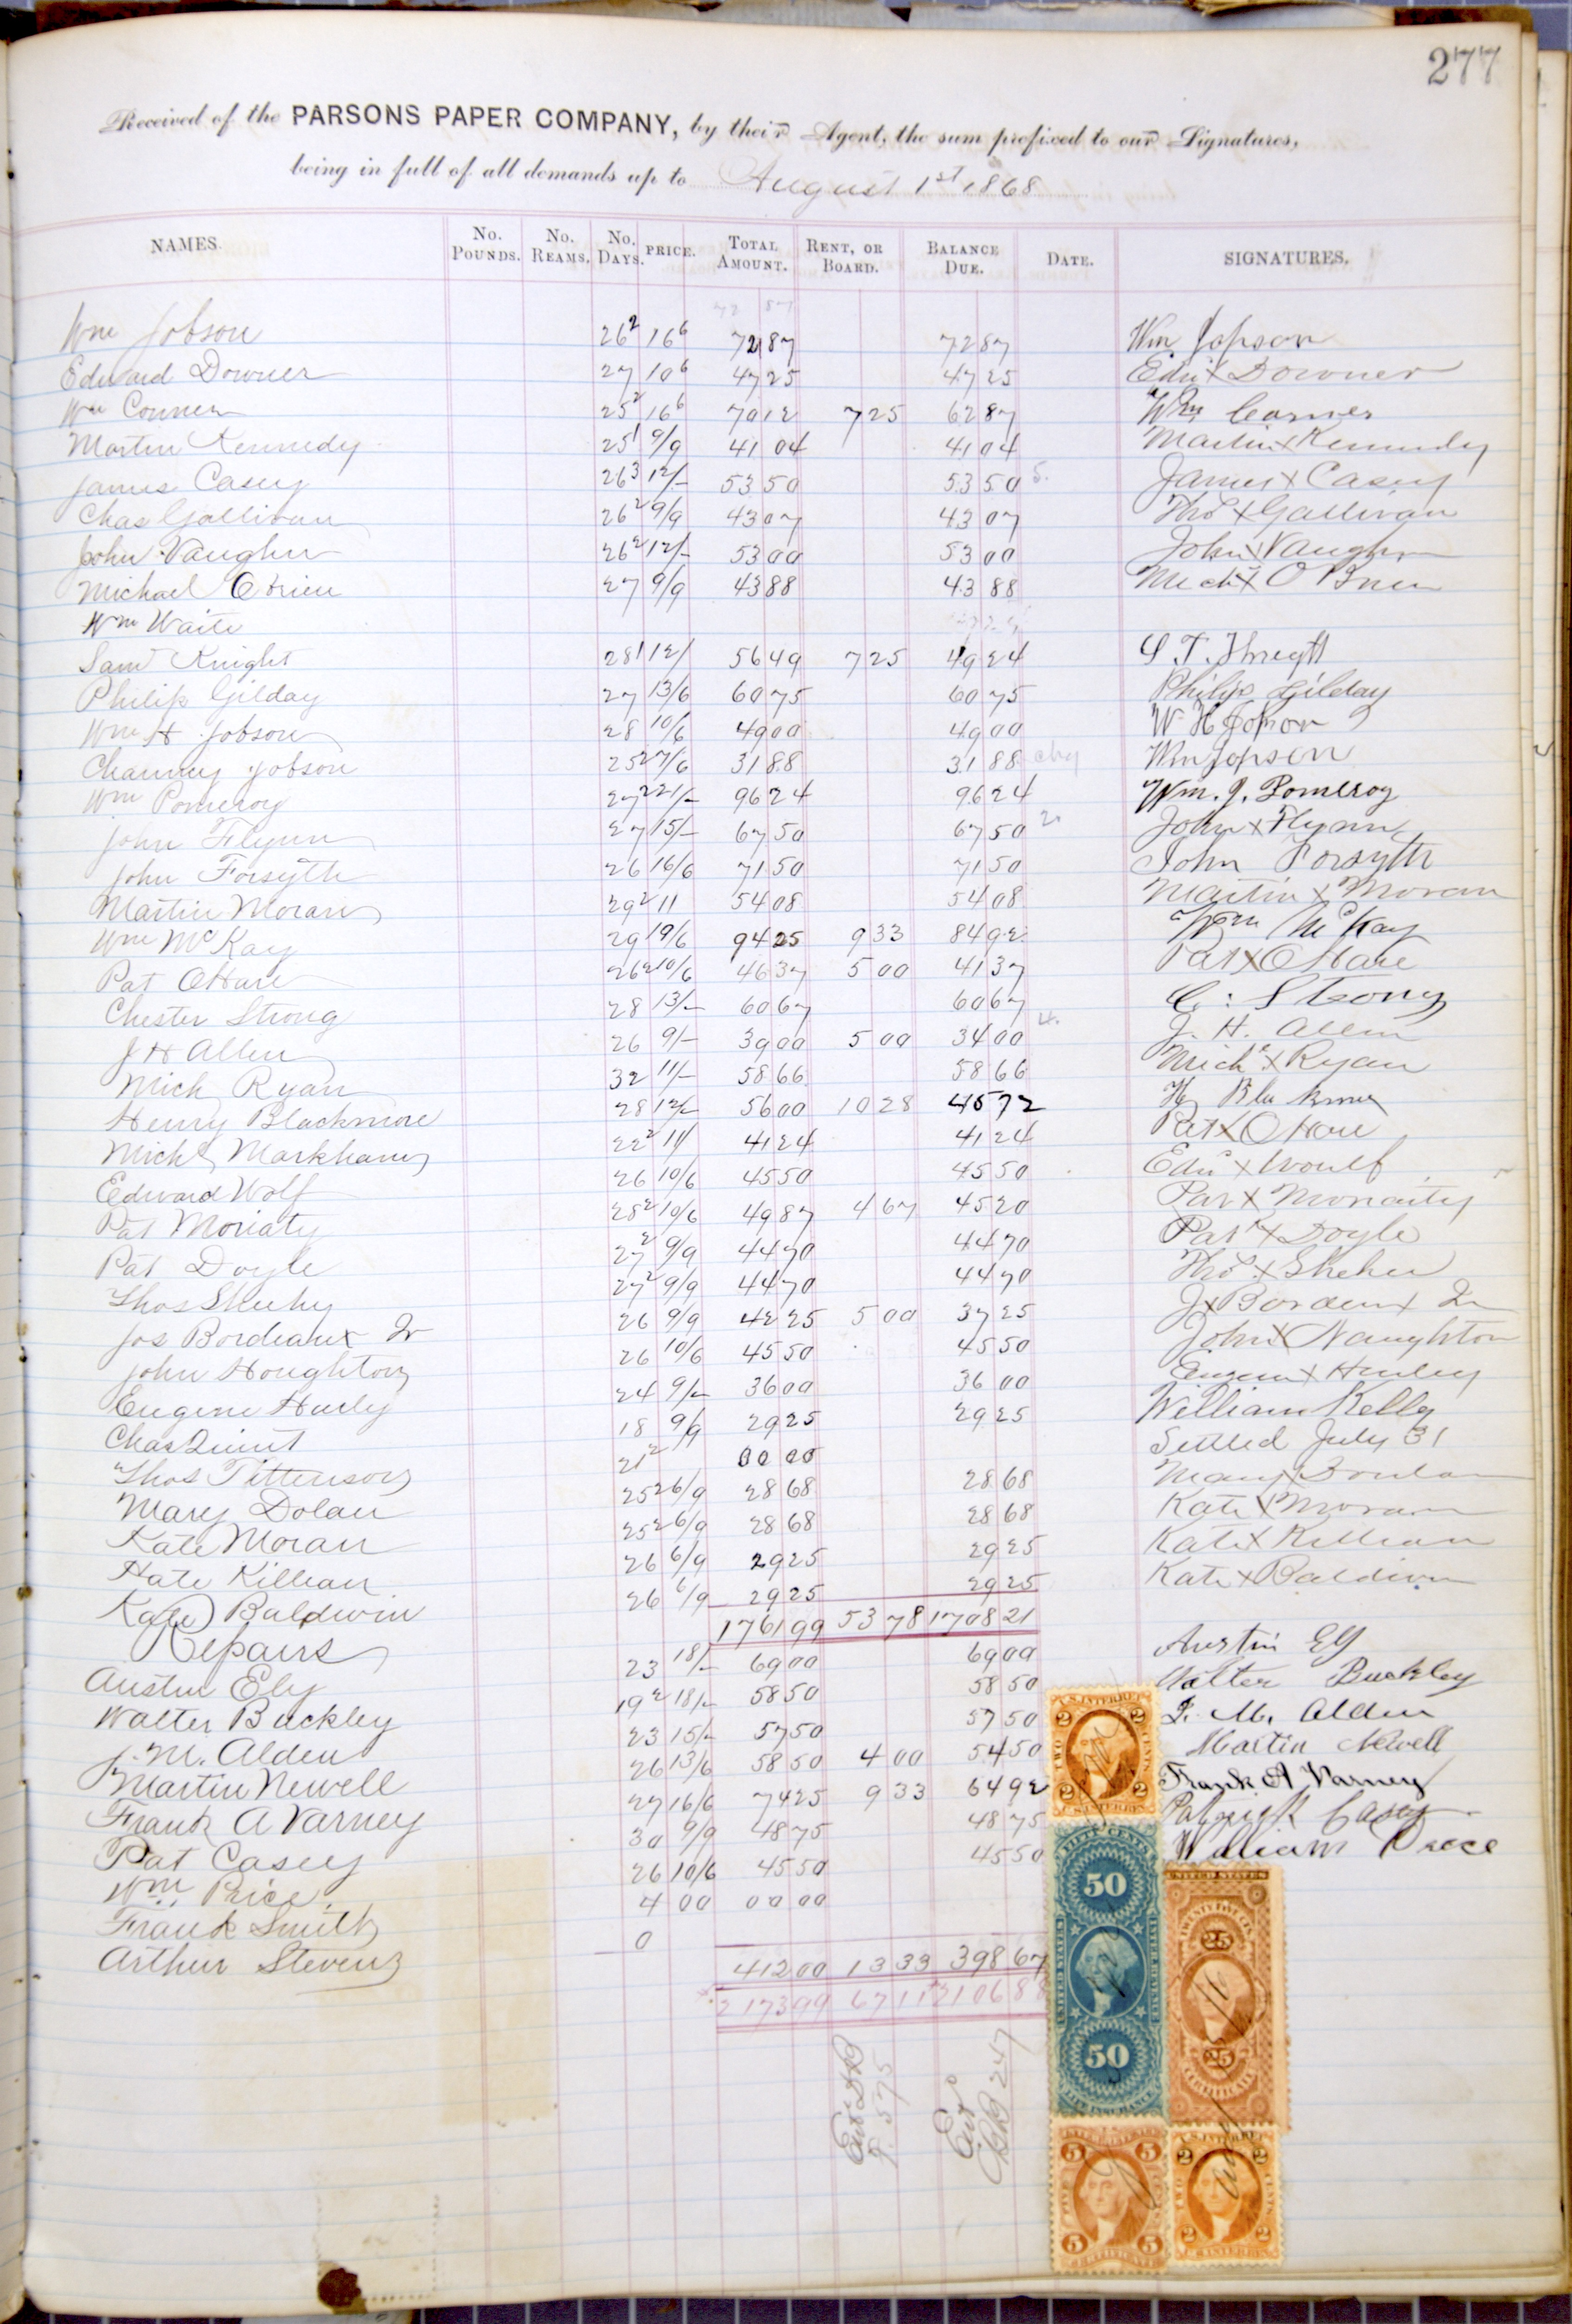 277
Received of the PARSONS PAPER COMPANY, by their Agent, the sum prefixed to our Signatures,
being in full of all demands up to August 1st 1868
NAMES. No. POUNDS. No. REAMS. No. DAYS. PRICE. TOTAL AMOUNT. RENT, OR BOARD. BALANCE DUE. DATE. SIGNATURES.
Wm Jobson 26 2 16 6 72 87 72 87 Wm Jopson
Edward Downer 27 10 6 47 25 47 25 Edw X Downer
Wm Conner 25 2 16 6 70 12 7 25 62 87 Wm Conner
Martin Kennedy 25 1 9/9 41 04 41 04 Martin X Kennedy
James Casey 26 3 12/- 53 50 53 50 5. James X Casey
Chas Gallivan 26 2 9/9 43 07 43 07 Thos X Gallivan
John Vaughn 26 2 12/- 53 00 53 00 John X Vaughn
Michael OBrien 27 9/9 43 88 43 88 Mich X O Brien
Wm Waite
Saml Knight 28 1 12/ 56 49 7 25 49 24
Philip Gilday 27 13/6 60 75 60 75 Philip Gilday
Wm H Jobson 28 10/6 49 00 49 00 W H Jopson
Chauncy Jobson 25 2 7/6 31 88 31 88 chg Wm Jopson
Wm Pomeroy 27 2 21/- 96 24 96 24 Wm. J. Pomeroy
John Flynn 27 15/- 67 50 67 50 2. John X Flynn
John Forsyth 26 16/6 71 50 71 50 John Forsyth
Martin Moran 29 2 11 54 08 54 08 Martin X Moran
Wm McKay 29 19/6 94 25 9 33 84 92 Wm McKay
Pat OHare 26 2 10/6 46 37 5 00 41 37 Pat X OHare
Chester Strong 28 13/- 60 67 60 67 C. Strong
J H Allen 26 9/- 39 00 5 00 34 00 4. J. H. Allen
Mich Ryan 32 11/- 58 66 58 66 Mich X Ryan
Henry Blackmore 28 12/- 56 00 10 28 45 72 Hy Blackmer
Michl Markham 22 2 11/ 41 24 41 24 Pat X OHare
Edward Wolf 26 10/6 45 50 45 50 Edw X Woulf
Pat Moriaty 28 2 10/6 49 87 4 67 45 20 Pat X Moriaity
Pat Doyle 27 2 9/9 44 70 44 70 Pat X Doyle
Thos Sheehy 27 2 9/9 44 70 44 70 Thos X Shehee
Jos Bordeaux Jr 26 9/9 42 25 5 00 37 25 J X Bordeaux Jr
John Houghton 26 10/6 45 50 45 50 John X Naughton
Eugene Hurly 24 9/- 36 00 36 00 Eugene X Hurley
Chas Quint 18 9/9 29 25 29 25 William Kelly
Thos Tittenson 21 2 00 00 Settled July 31
Mary Dolan 25 2 6/9 28 68 28 68 Mary X Doulan
Kate Moran 25 2 6/9 28 68 28 68 Kate X Moran
Kate Killean 26 6/9 29 25 29 25 Kate X Killean
Kate Baldwin 26 6/9 29 25 29 25 Kate X Baldwin
1761 99 53 78 1708 21
Repairs
Austin Ely 23 18/- 69 00 69 00 Austin Ely
Walter Buckley 19 2 18/- 58 50 58 50 Walter Buckley
J. M. Alden 23 15/- 57 50 57 50 J. M. Alden
Martin Newell 26 13/6 58 50 4 00 54 50 Martin Newell
Frank A Varney 27 16/6 74 25 9 33 64 92 Frank A Varney
Pat Casey 30 9/9 48 75 48 75 Patrick Casey
Wm Price 26 10/6 45 50 45 50 William Price
Frank Smith 4 00 00 00
Arthur Stevens 0
412 00 13 33 398 67
2173 99 67 11 2106 88
Ent DB
P. 575
Ent
CBB 247
U.S. INTER REV.
2 2
TWO CENTS
2 2
U.S. INTER REV.
FIFTY CENTS
50
UNITED STATES INTER REVENUE
50
LIFE INSURANCE
UNITED STATES
TWENTY FIVE CENTS
25
25
CERTIFICATE
5 5
FIVE CENTS
5 5
CERTIFICATE
U.S. INTER REV.
2 2
TWO CENTS
2 2
U.S. INTER REV.